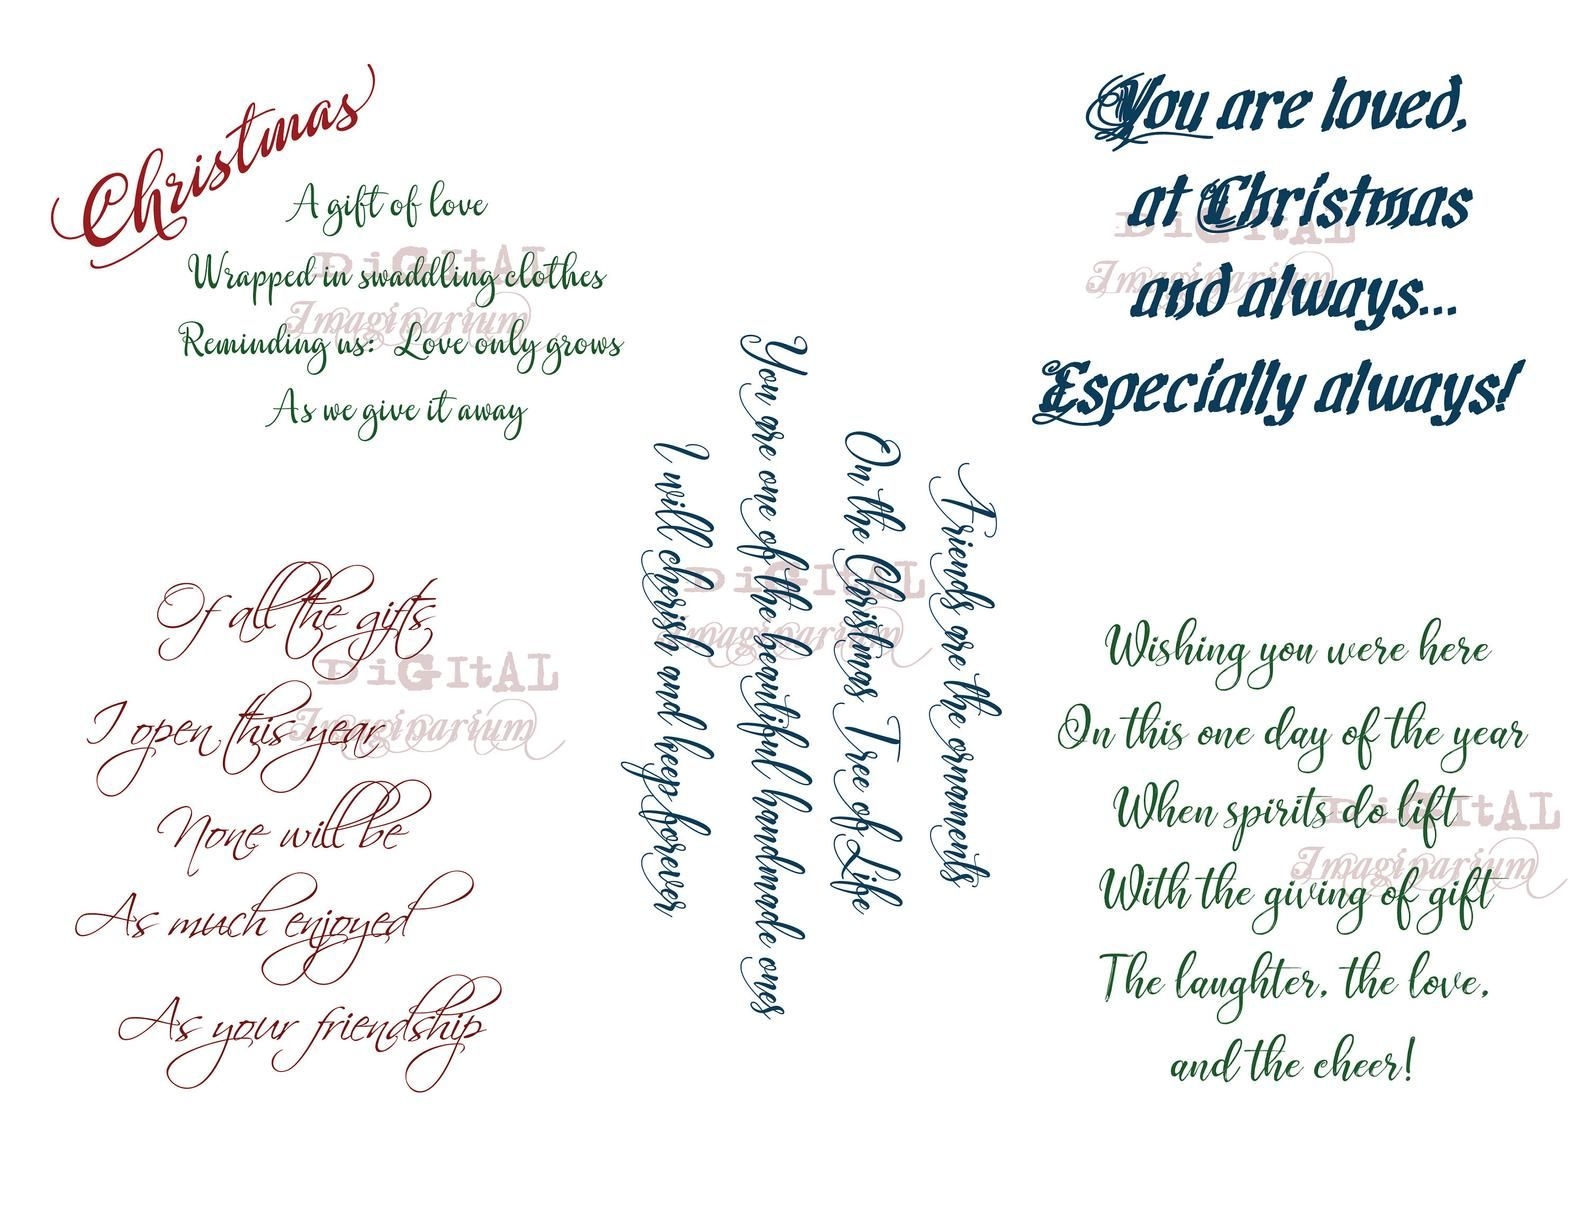 Christmas
A gift of love
Wrapped in swaddling clothes
Reminding us: Love only grows
As we give it away
DiGItAL
Imaginarium
You are loved,
at Christmas
and always...
Especially always!
DiGItAL
Imaginarium
Friends are the ornaments
On the Christmas Tree of Life
You are one of the beautiful handmade ones
I will cherish and keep forever
DiGItAL
Imaginarium
Of all the gifts
I open this year
None will be
As much enjoyed
As your friendship
DiGItAL
Imaginarium
Wishing you were here
On this one day of the year
When spirits do lift
With the giving of gift
The laughter, the love,
and the cheer!
DiGItAL
Imaginarium